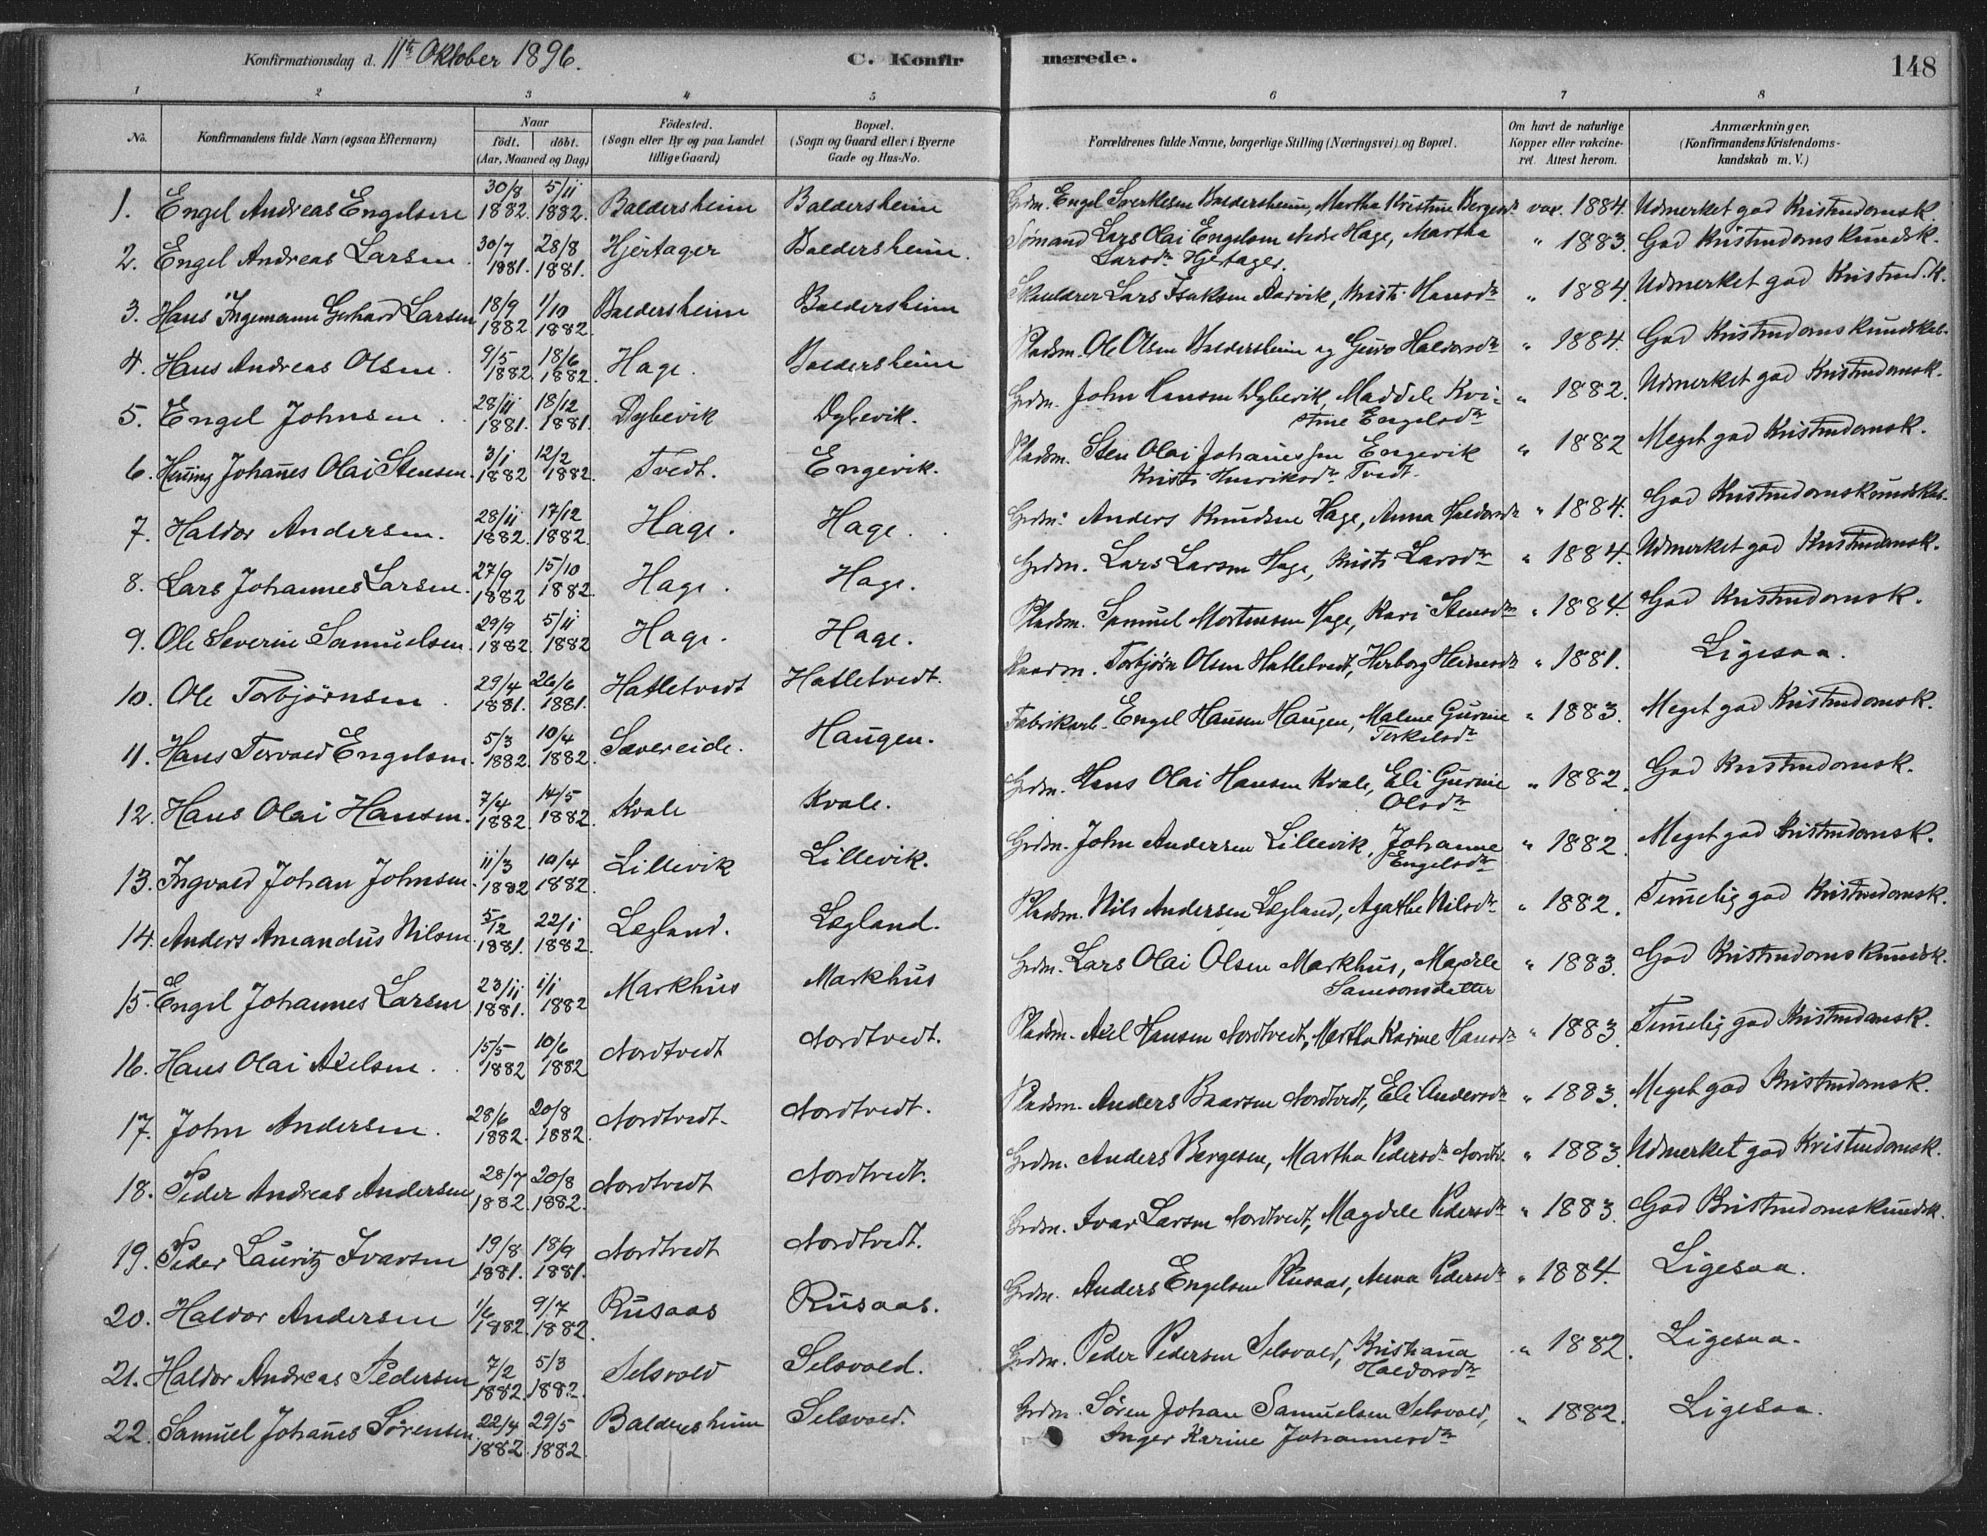 Konfirmationsdag d. 11te Oktober 1896. C. Konfirmerede. 148
1 2 3 4 5 6 7 8
No. Konfirmandens fulde Navn (ogsaa Efternavn) Naar født. døbt. (Aar, Maaned og Dag) Fødested. (Sogn eller By og paa Landet tillige Gaard) Bopæl. (Sogn og Gaard eller i Byerne Gade og Hus-No. Forældrenes fulde Navne, borgerlige Stilling (Næringsvei) og Bopæl. Om havt de naturlige Kopper eller vakcineret. Attest herom. Anmærkninger. (Konfirmandens Kristendomskundskab m. V.)
1. Engel Andreas Engelsen 30/8 1882. 5/11 1882. Baldersheim Baldersheim Grdm. Engel Sverkelsen Baldersheim, Martha Kristine Bergesdtr vax. 1884. Udmerket god Kristendomsk.
2. Engel Andreas Larsen 30/7 1881. 28/8 1881. Hjertager Baldersheim. Sømand Lars Olai Engelsen Nedre Hage, Martha Larsdtr Hjertager. " 1883. God Kristendomskundsk.
3. Hans Ingemann Gerhard Larsen 18/9 1882 1/10 1882. Baldersheim Baldersheim Lars Isaksen Aarvik, Kristi Hansdtr " 1884. Udmerket god Kristend.k.
4. Hans Andreas Olsen. 9/5 1882. 18/6 1882. Hage. Baldersheim Pladsm. Ole Olsen Baldersheim og Guro Haldorsdtr " 1884. God Kristendomskundskab.
5. Engel Johnsen. 28/11 1881. 18/12 1881. Dybevik Dybevik. Grdm. John Hansen Dybevik, Maddele Kristine Engelsdtr " 1882. Udmerket god Kristendomsk.
6. Johannes Olai Stensen. 3/1 1882 12/2 1882. Tvedt. Engevik. Pladsm. Sten Olai Johannessen Engevik Kristi Henriksdtr Tvedt. " 1882 Meget god Kristendomsk.
7. Haldor Andersen. 28/11 1882. 17/12 1882. Hage. Hage. Grdm. Anders Knudsen Hage, Anna Haldorsdtr " 1884. God Kristendomskundskab.
8. Lars Johannes Larsen. 27/9 1882 15/10 1882. Hage. Hage. Grdm. Lars Larsen Hage, Kristi Larsdtr " 1884. Udmerket god Kristendomsk.
9. Ole Severin Samuelsen. 29/9 1882 5/11 1882. Hage. Hage. Pladsm. Samuel Mortensen Hage, Kari Stensdtr " 1884. God Kristendomsk.
10. Ole Torbjørnsen. 29/4 1881. 26/6 1881. Hatletvedt Hatletvedt. Torbjørn Olsen Hatletvedt, Herborg Heinesdtr " 1881. Ligesaa.
11. Hans Torvald Engelsen. 5/3 1882. 10/4 1882. Sævereide. Haugen. Fabrikarb. Engel Hansen Haugen, Malene Gurine Terkelsdtr " 1883. Meget god Kristendomsk.
12. Hans Olai Hansen. 7/4 1882. 14/5 1882. Kvale Kvale. Grdm. Hans Olai Hansen Kvale, Eli Gurine Olsdtr " 1882. God Kristendomsk.
13. Ingvald Johan Johnsen. 11/3 1882 10/4 1882. Lillevik Lillevik. Grdm. John Andersen Lillevik, Johanne Engelsdtr " 1882. Meget god Kristendomsk.
14. Anders Amandus Nilsen. 5/12 1881. 22/1 1882. Lægland. Lægland. Pladsm. Nils Andersen Lægland, Agathe Nilsdtr " 1882. Temelig god Kristendomsk.
15. Engel Johannes Larsen 23/11 1881. 1/1 1882 Markhus Markhus Grdm. Lars Olai Olsen Markhus, Magdele Samsonsdatter " 1883. God Kristendomskundsk.
16. Hans Olai Axelsen. 15/5 1882 10/6 1882 Nordtvedt Nordtvedt. Pladsm. Axel Hansen Nordtvedt, Martha Karine Hansdtr " 1883. Temelig god Kristendomsk.
17. John Andersen. 28/6 1882. 20/8 1882. Nordtvedt. Nordtvedt. Pladsm. Anders Baarsen Nordtvedt, Eli Andersdtr " 1883. Meget god Kristendomsk.
18. Peder Andreas Andersen 28/7 1882. 20/8 1882. Nordtvedt Nordtvedt. Grdm. Anders Bergesen, Martha Pedersdtr Nordtv. " 1883. Udmerket god Kristendomsk.
19. Peder Lauritz Ivarsen 19/8 1881. 18/9 1881. Nordtvedt Nordtvedt. Grdm. Ivar Larsen Nordtvedt, Magdele Pedersdtr " 1883. God Kristendomskundsk.
20. Haldor Andersen 1/6 1882. 9/7 1882. Rusaas Rusaas. Grdm. Anders Engelsen Rusaas, Anna Pedersdtr " 1884. Ligesaa.
21. Haldor Andreas Pedersen 7/2 1882. 5/3 1882. Selsvold Selsvold. Grdm. Peder Pedersen Selsvold, Kristiana Haldorsdtr " 1882. Ligesaa.
22. Samuel Johannes Sørensen 22/4 1882. 29/5 1882 Baldersheim Selsvold. Grdm. Søren Johan Samuelsen Selsvold, Inger Karine Johannesdtr " 1882. Ligesaa.